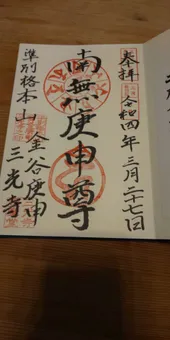 奉拝 令和四年三月二十七日
南無庚申尊
金谷庚申
準別格本山 三光寺